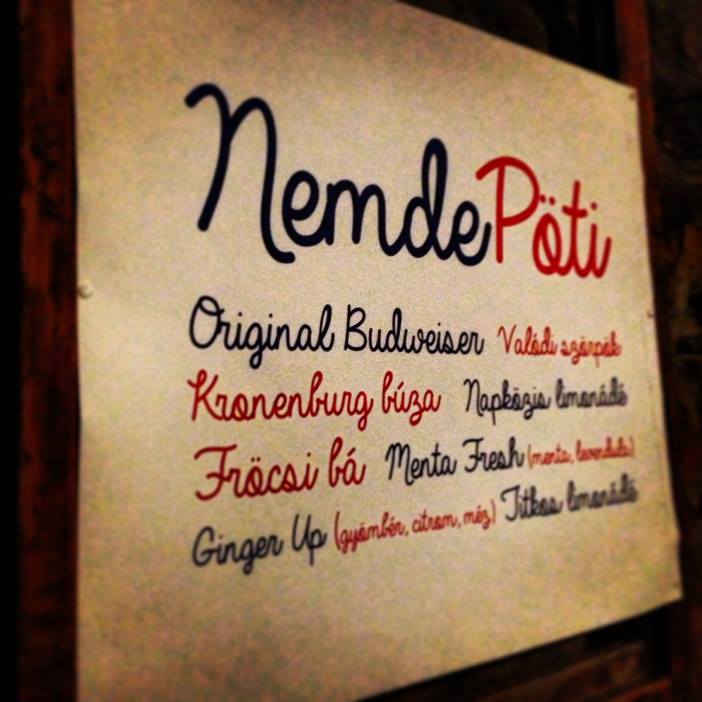 NemdePöti
Original Budweiser Valódi szörpök
Kronenburg búza Napközis limonádé
Fröcsi bá Menta Fresh (menta, levendula)
Ginger Up (gyömbér, citrom, méz) Titkos limonádé